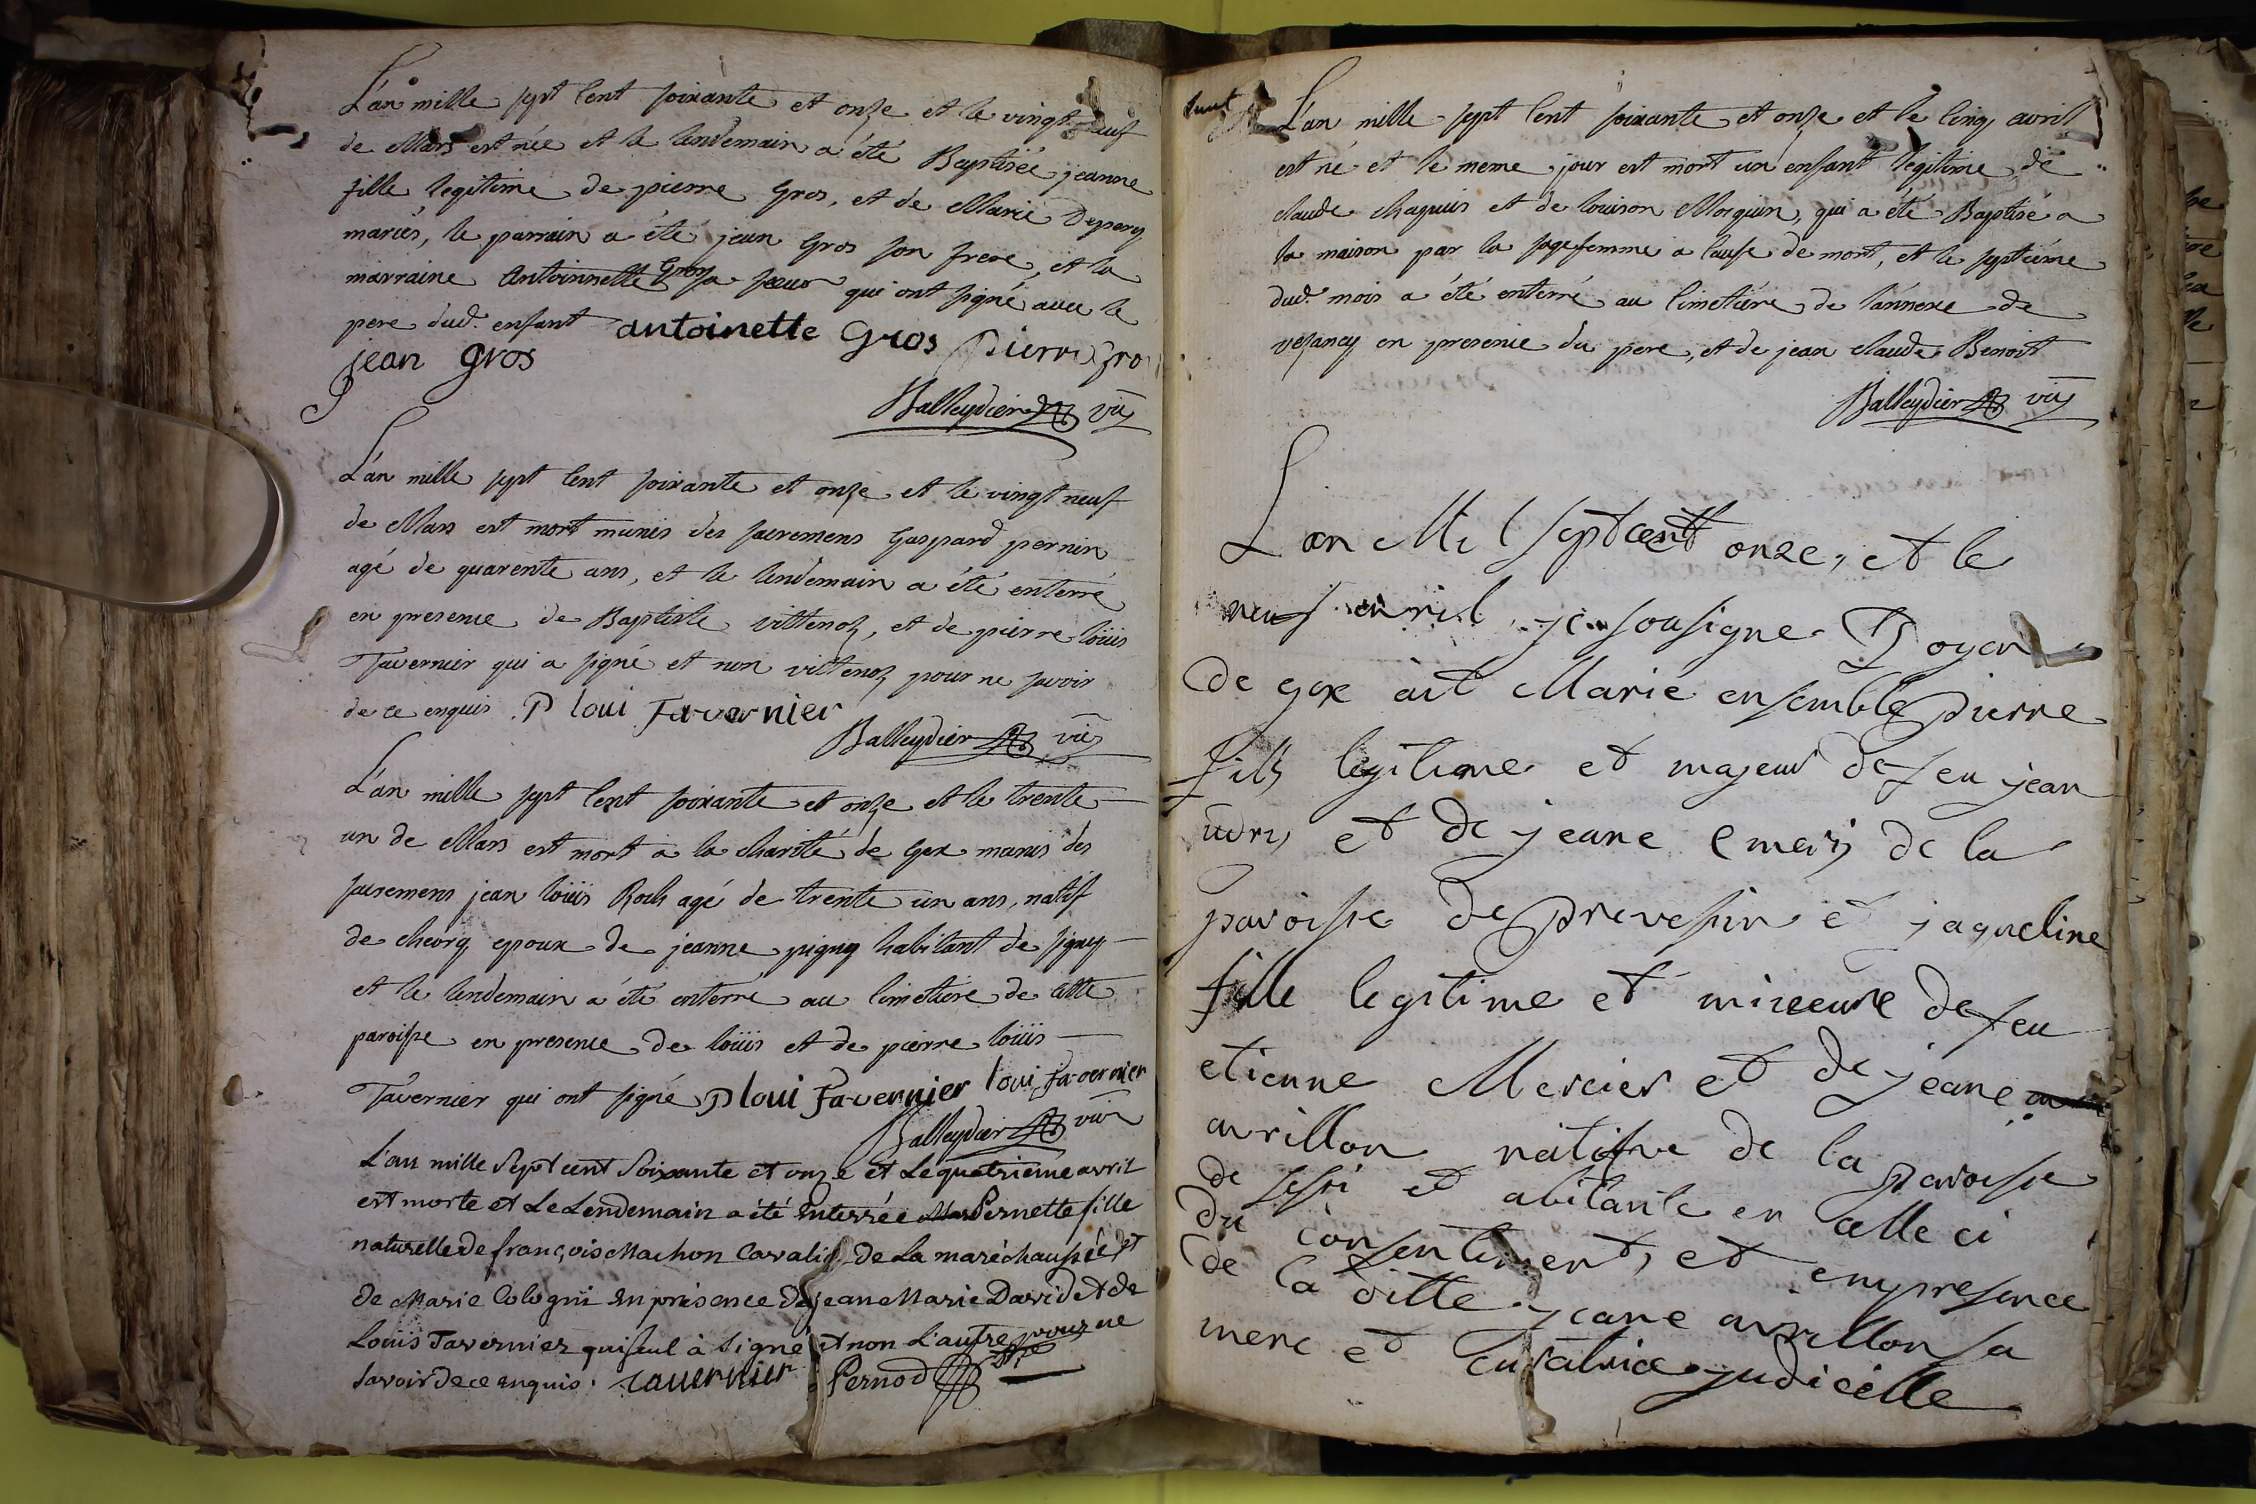 L'an mille sept cent soixante et onze et le vingt neuf
de Mars est née et le lendemain a été Baptisée jeanne
fille legitime de pierre Gros, et de Marie Depery
mariés, le parrain a été jean Gros son frere, et la
marraine Antoinnette Gros sa soeur qui ont signé avec le
pere dud. enfant antoinette Gros pierre gro
jean gros
Balleydier vic
L'an mille sept cent soixante et onze et le vingt neuf
de Mars est mort munis des sacremens Gaspard pernin
agé de quarente ans, et le lendemain a été enterré
en presence de Baptiste vittenoz, et de pierre loüis
Tavernier qui a signé et non vittenoz pour ne savoir
de ce enquis. P loui Tavernier
Balleydier vic
L'an mille sept cent soixante et onze et le trente
un de Mars est mort a la charité de Gex munis des
sacremens jean loüis Roch agé de trente un ans, natif
de epoux de jeanne pigny habitant de signy
et le lendemain a été enterré au cimetiere de cette
paroisse en presence de loüis et de pierre loüis
Tavernier qui ont signé P loui Tavernier loui Tavernier
Balleydier vic
L'an mille Sept cent Soixante et onze et Le quatrieme avril
est morte et Le Lendemain a été Enterrée Pernette fille
naturelle de françois Machon Cavalier de La maréchaussée et
de Marie Cologni En présence de jean Marie David et de
Louis Tavernier qui seul à signé et non L'autre pour ne
savoir de ce enquis. Tavernier Pernod
L'an mille sept cent soixante et onze et le cinq avril
est né et le meme jour est mort un enfant legitime de
claude chapuis et de louison Morquin, qui a été Baptisé a
la maison par la sagefemme a cause de mort, et le septiéme
dud. mois a été enterré au cimetiére de l'annexe de
vesancy en presence du pere, et de jean claude Benoit
Balleydier vic
L an Mil septcent onze, et le
neuf avril, je sousigne Doyen
de gex ait Marié ensemble pierre
fils legitime et majeur de feu jean
et de jeane emery de la
paroisse de prevessin et jaqueline
fille legitime et mineure de feu
etienne Mercier et de jeane
avrillon natifve de la paroisse
de sessi et abitante en celle ci
du consentement, et empresence
de la ditte jeane avrillon sa
mere et curatrice judicielle